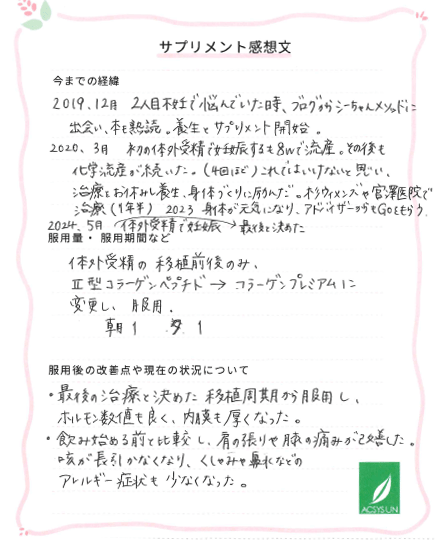 サプリメント感想文
今までの経緯
2019.12月 2人目不妊で悩んでいた時、ブログからシーちゃんメソッドに
出会い、本も熟読。養生とサプリメント開始。
2020.3月 初の体外受精で妊娠するも8wで流産。その後も
化学流産が続いた。(4回ほど)これではいけないと思い、
治療をお休みし養生、身体づくりに励んだ。杉ウィメンズや宮澤医院で
治療(1年半) 2023 身体が元気になり、アドバイザーからもGOをもらう.
2024.5月 体外受精で妊娠 → 最後と決めた
服用量・服用期間など
体外受精の移植前後のみ、
Ⅱ型コラーゲンペプチド → コラーゲンプレミアムに
変更し、服用.
朝1 夕1
服用後の改善点や現在の状況について
・最後の治療と決めた移植周期から服用し、
ホルモン数値も良く、内膜も厚くなった。
・飲み始める前と比較し、肩の張りや腰の痛みが改善した。
咳が長引かなくなり、くしゃみや鼻水などの
アレルギー症状も少なくなった。
ACSYSUN